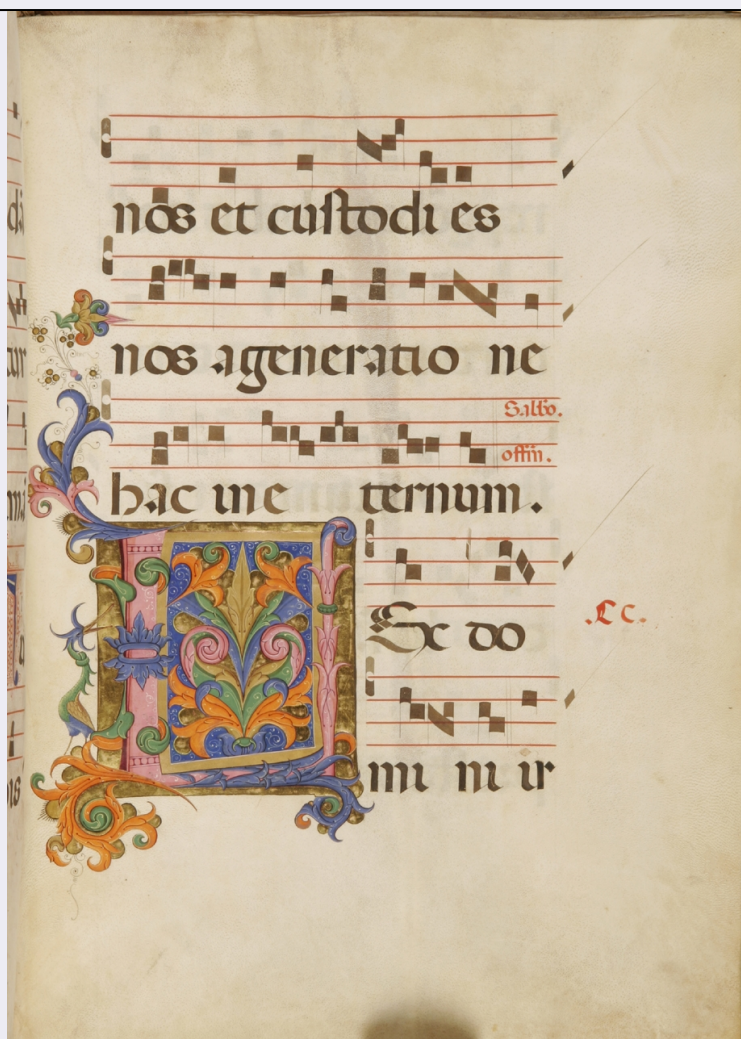 nos et custodi es
nos ageneratio ne
Salbo.
offin.
hac ine ternum.
Ex do
.CC.
mi ni ir